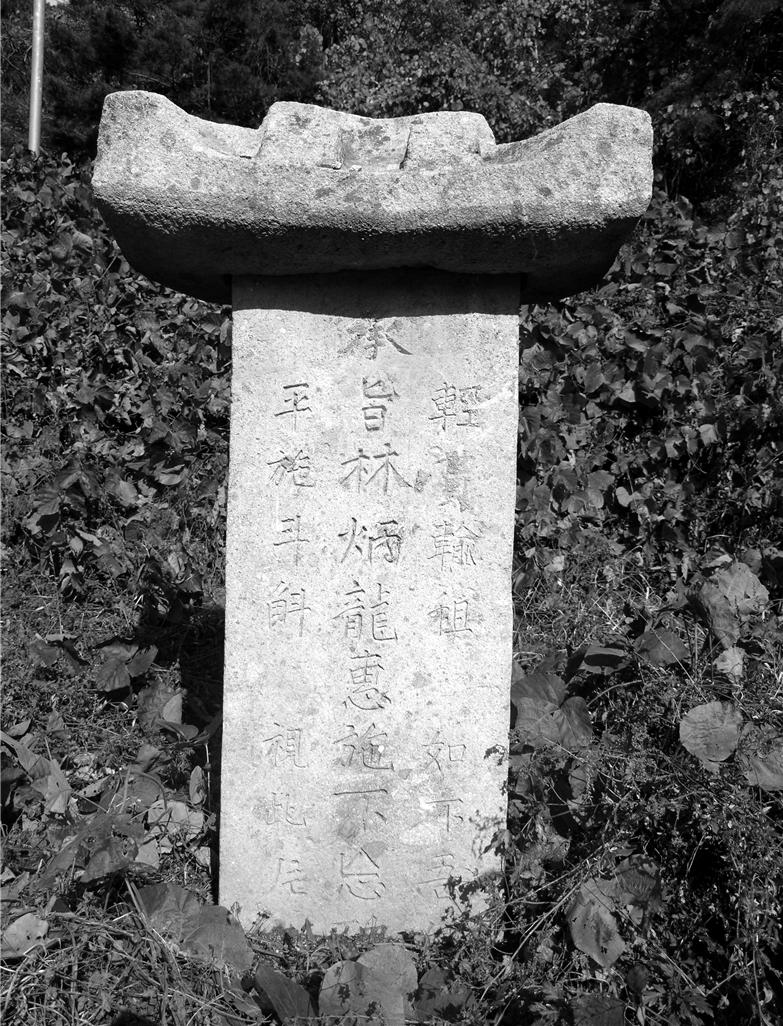 輕輸租 如下吾
承旨林炳龍惠施不忘
平施斗斛 視此